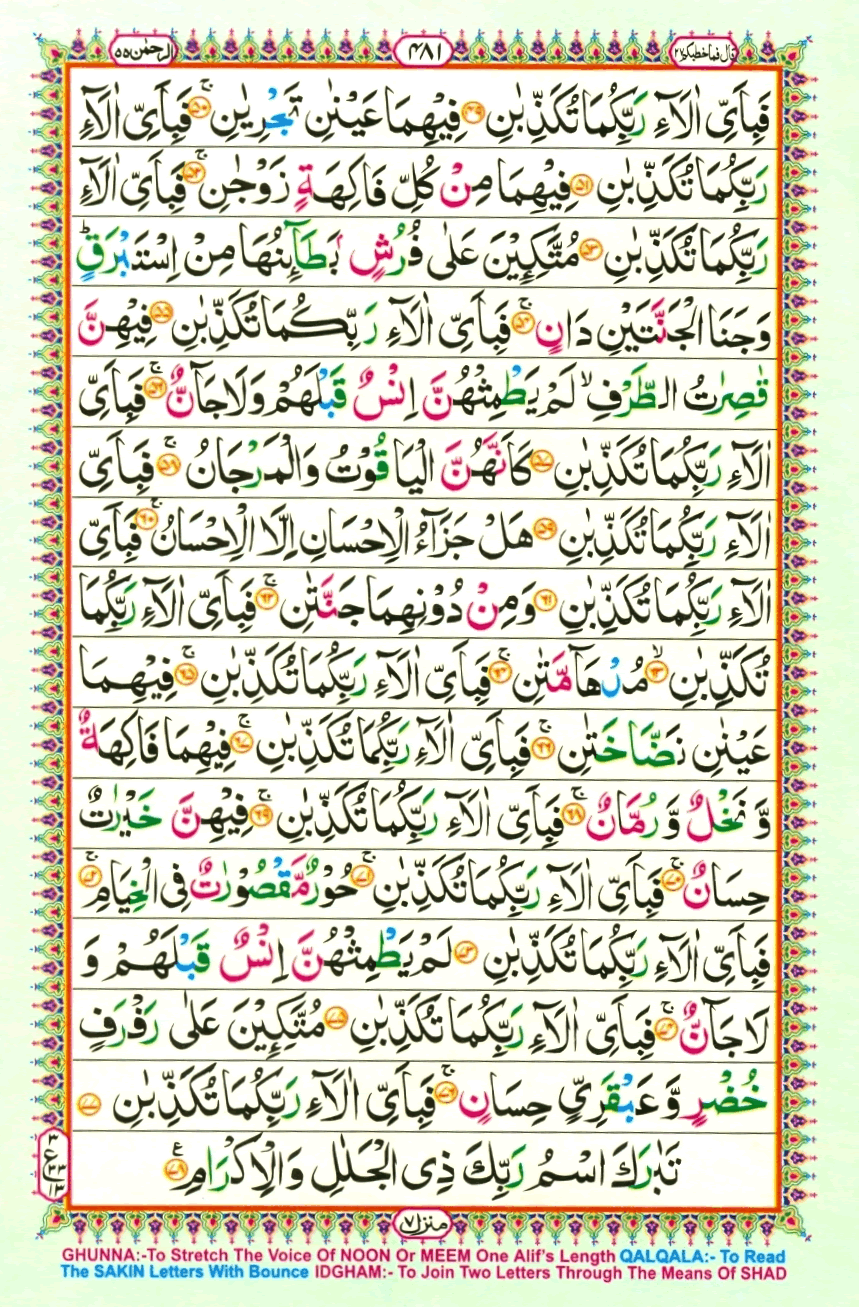 قال فما خطبکم ٢٧
٤٨١
الرحمٰن ٥٥
فَبِاَیِّ اٰلَآءِ رَبِّكُمَا تُكَذِّبٰنِ ﴿٤٩﴾ فِیْهِمَا عَیْنٰنِ تَجْرِیٰنِ ۚ﴿٥٠﴾ فَبِاَیِّ اٰلَآءِ
رَبِّكُمَا تُكَذِّبٰنِ ﴿٥١﴾ فِیْهِمَا مِنْ كُلِّ فَاكِهَةٍ زَوْجٰنِ ۚ﴿٥٢﴾ فَبِاَیِّ اٰلَآءِ
رَبِّكُمَا تُكَذِّبٰنِ ﴿٥٣﴾ مُتَّكِـِٕیْنَ عَلٰی فُرُشٍۭ بَطَآىِٕنُهَا مِنْ اِسْتَبْرَقٍ ؕ
وَجَنَا الْجَنَّتَیْنِ دَانٍ ۚ﴿٥٤﴾ فَبِاَیِّ اٰلَآءِ رَبِّكُمَا تُكَذِّبٰنِ ﴿٥٥﴾ فِیْهِنَّ
قٰصِرٰتُ الطَّرْفِ ۙ لَمْ یَطْمِثْهُنَّ اِنْسٌ قَبْلَهُمْ وَلَا جَآنٌّ ۚ﴿٥٦﴾ فَبِاَیِّ
اٰلَآءِ رَبِّكُمَا تُكَذِّبٰنِ ﴿٥٧﴾ كَاَنَّهُنَّ الْیَاقُوْتُ وَالْمَرْجَانُ ۚ﴿٥٨﴾ فَبِاَیِّ
اٰلَآءِ رَبِّكُمَا تُكَذِّبٰنِ ﴿٥٩﴾ هَلْ جَزَآءُ الْاِحْسَانِ اِلَّا الْاِحْسَانُ ۚ﴿٦٠﴾ فَبِاَیِّ
اٰلَآءِ رَبِّكُمَا تُكَذِّبٰنِ ﴿٦١﴾ وَمِنْ دُوْنِهِمَا جَنَّتٰنِ ۚ﴿٦٢﴾ فَبِاَیِّ اٰلَآءِ رَبِّكُمَا
تُكَذِّبٰنِ ۙ﴿٦٣﴾ مُدْهَآمَّتٰنِ ۚ﴿٦٤﴾ فَبِاَیِّ اٰلَآءِ رَبِّكُمَا تُكَذِّبٰنِ ۚ﴿٦٥﴾ فِیْهِمَا
عَیْنٰنِ نَضَّاخَتٰنِ ۚ﴿٦٦﴾ فَبِاَیِّ اٰلَآءِ رَبِّكُمَا تُكَذِّبٰنِ ۚ﴿٦٧﴾ فِیْهِمَا فَاكِهَةٌ
وَّ نَخْلٌ وَّ رُمَّانٌ ۚ﴿٦٨﴾ فَبِاَیِّ اٰلَآءِ رَبِّكُمَا تُكَذِّبٰنِ ۚ﴿٦٩﴾ فِیْهِنَّ خَیْرٰتٌ
حِسَانٌ ۚ﴿٧٠﴾ فَبِاَیِّ اٰلَآءِ رَبِّكُمَا تُكَذِّبٰنِ ۚ﴿٧١﴾ حُوْرٌ مَّقْصُوْرٰتٌ فِی الْخِیَامِ ۚ﴿٧٢﴾
فَبِاَیِّ اٰلَآءِ رَبِّكُمَا تُكَذِّبٰنِ ﴿٧٣﴾ لَمْ یَطْمِثْهُنَّ اِنْسٌ قَبْلَهُمْ وَ
لَا جَآنٌّ ۚ﴿٧٤﴾ فَبِاَیِّ اٰلَآءِ رَبِّكُمَا تُكَذِّبٰنِ ﴿٧٥﴾ مُتَّكِـِٕیْنَ عَلٰی رَفْرَفٍ
خُضْرٍ وَّ عَبْقَرِیٍّ حِسَانٍ ۚ﴿٧٦﴾ فَبِاَیِّ اٰلَآءِ رَبِّكُمَا تُكَذِّبٰنِ ﴿٧٧﴾
تَبٰرَكَ اسْمُ رَبِّكَ ذِی الْجَلٰلِ وَالْاِكْرَامِ ﴿٧٨﴾ۧ
٣
ع
٣٣
١٣
منزل ٧
GHUNNA:-To Stretch The Voice Of NOON Or MEEM One Alif's Length QALQALA:- To Read
The SAKIN Letters With Bounce IDGHAM:- To Join Two Letters Through The Means Of SHAD